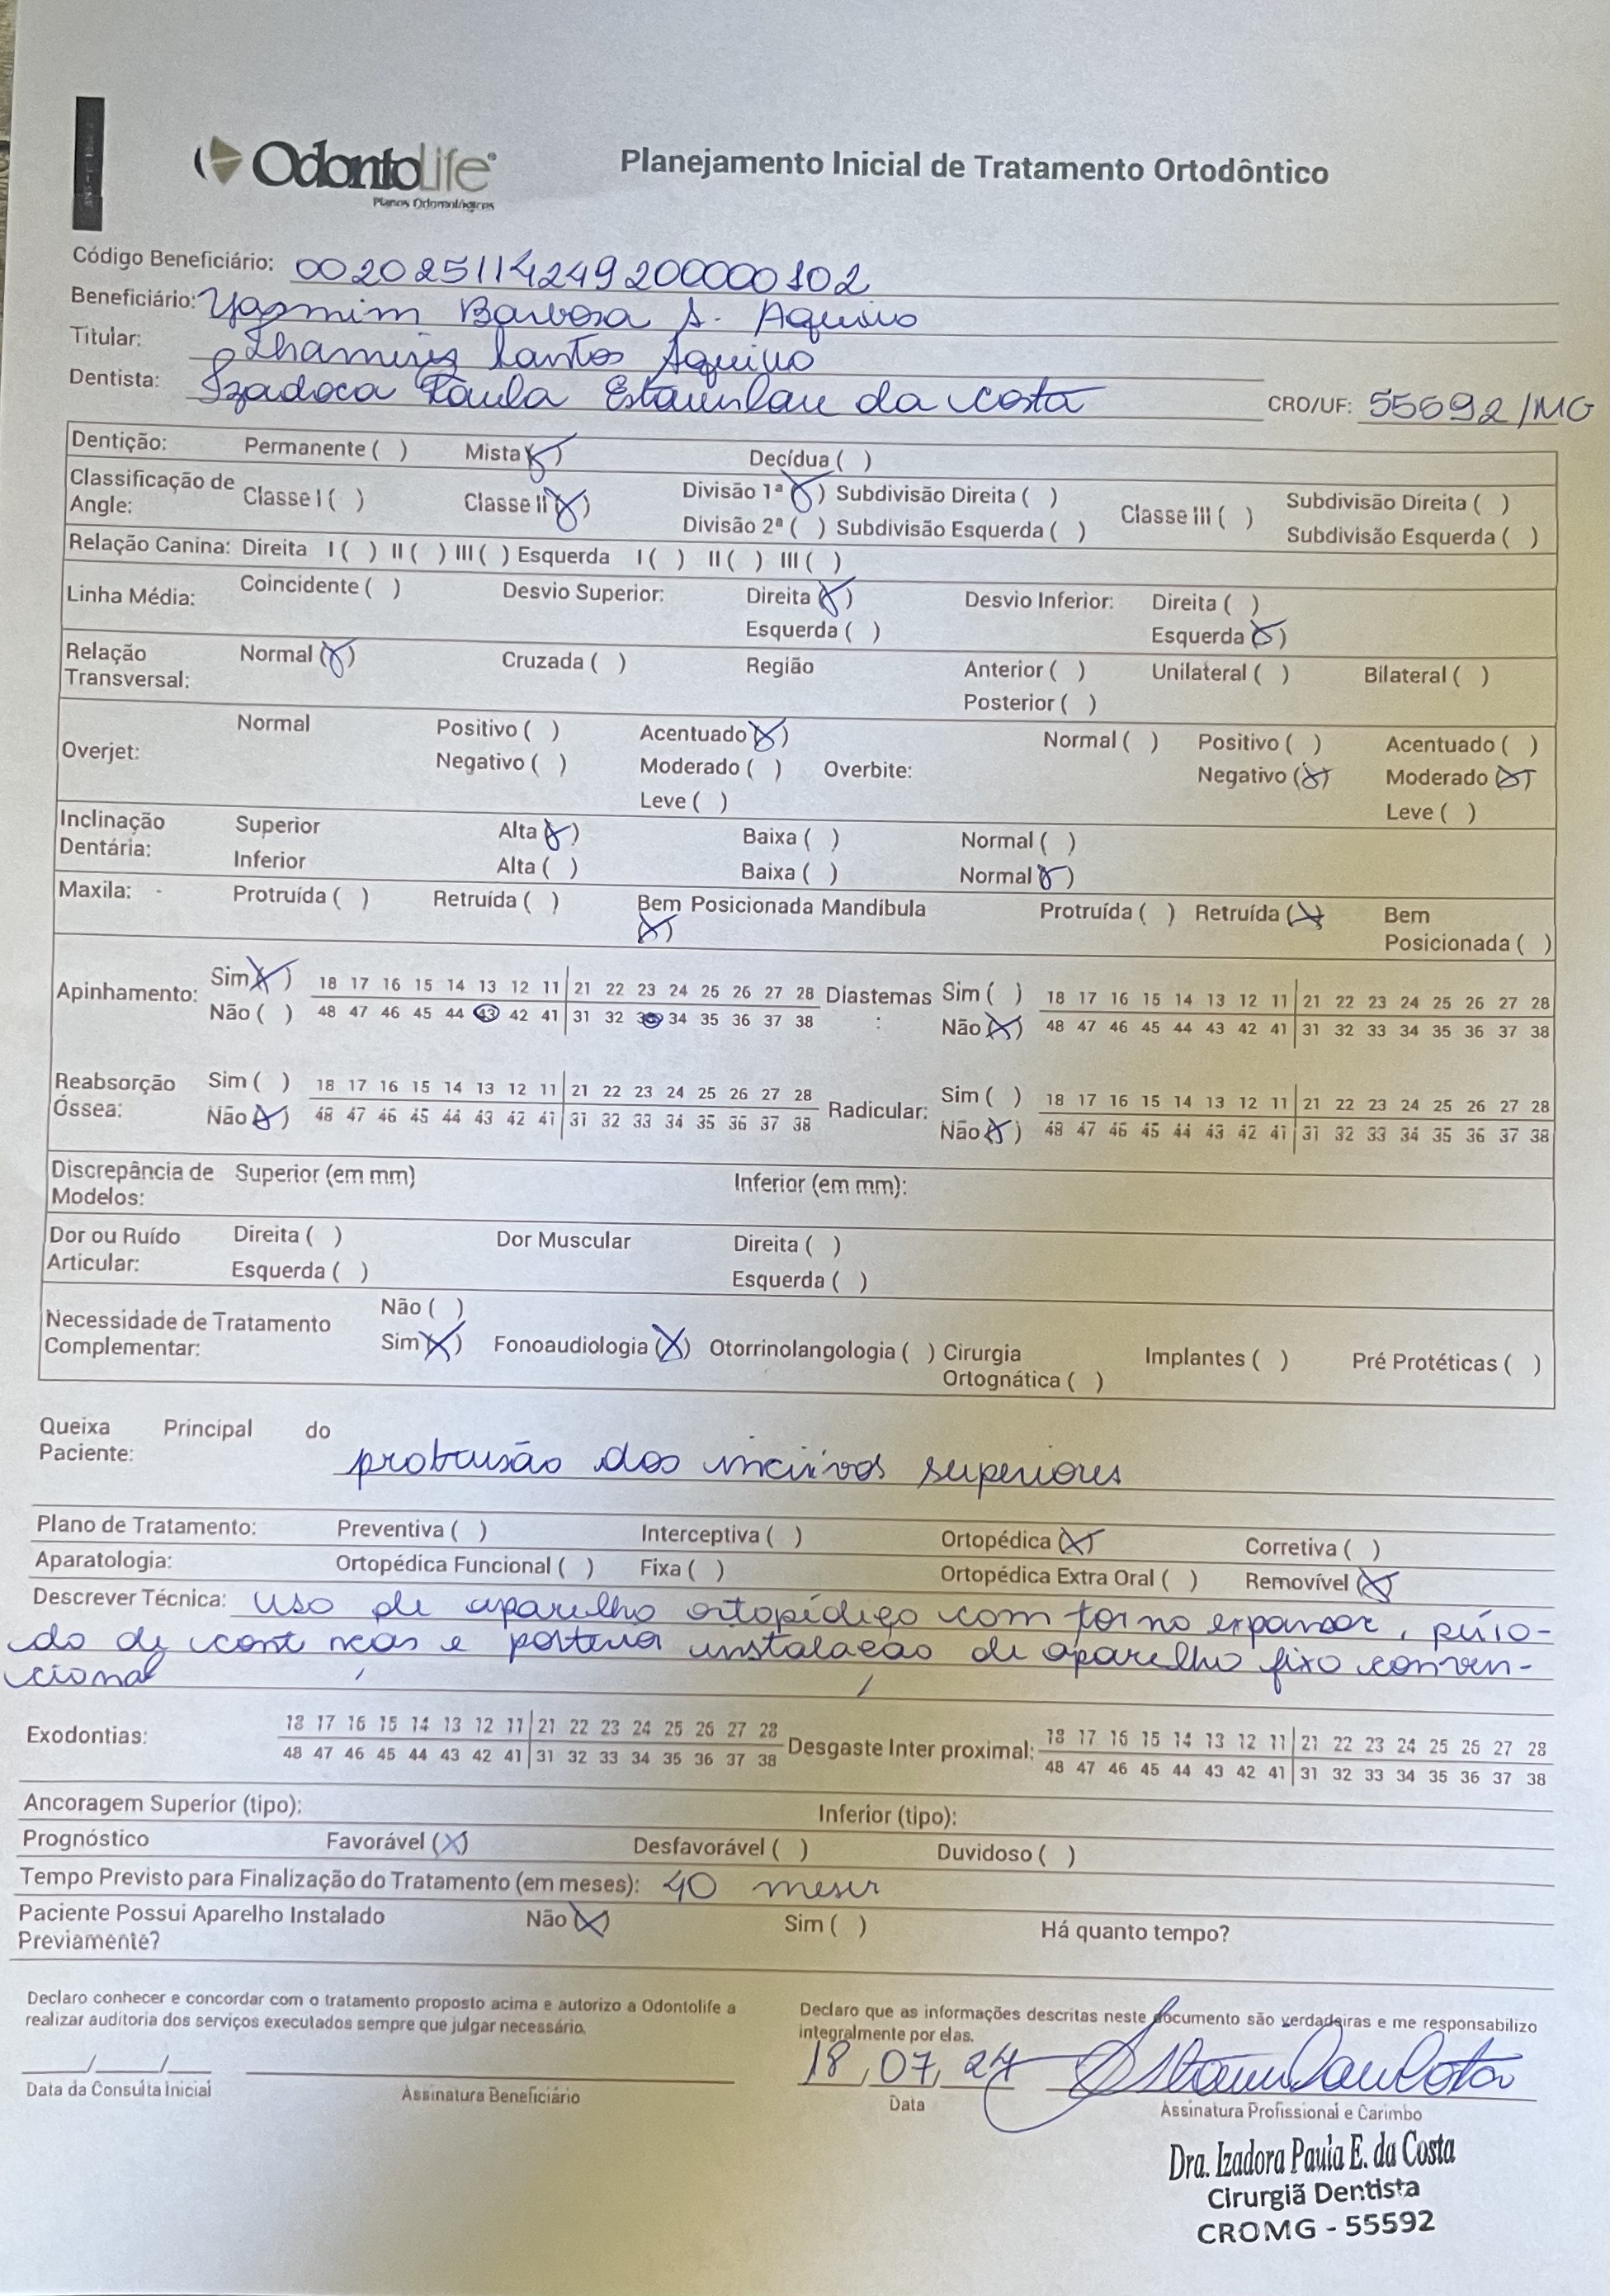 OdontoLife
Planos Odontológicos
Planejamento Inicial de Tratamento Ortodôntico
Código Beneficiário: 00202511424920000102
Beneficiário: Yasmim Barbosa S. Aquino
Titular: Thamiris Santos Aquino
Dentista: Izadora Paula Estanislau da Costa CRO/UF: 55592/MG
Dentição: Permanente ( ) Mista (X) Decídua ( )
Classificação de Angle: Classe I ( ) Classe II (X) Divisão 1ª (X) Subdivisão Direita ( ) Classe III ( ) Subdivisão Direita ( )
Divisão 2ª ( ) Subdivisão Esquerda ( ) Subdivisão Esquerda ( )
Relação Canina: Direita I ( ) II ( ) III ( ) Esquerda I ( ) II ( ) III ( )
Linha Média: Coincidente ( ) Desvio Superior: Direita (X) Desvio Inferior: Direita ( )
Esquerda ( ) Esquerda (X)
Relação Transversal: Normal (X) Cruzada ( ) Região Anterior ( ) Unilateral ( ) Bilateral ( )
Posterior ( )
Overjet: Normal Positivo ( ) Acentuado (X) Overbite: Normal ( ) Positivo ( ) Acentuado ( )
Negativo ( ) Moderado ( ) Negativo (X) Moderado (X)
Leve ( ) Leve ( )
Inclinação Dentária: Superior Alta (X) Baixa ( ) Normal ( )
Inferior Alta ( ) Baixa ( ) Normal (X)
Maxila: - Protruída ( ) Retruída ( ) Bem Posicionada (X) Mandíbula Protruída ( ) Retruída (X) Bem Posicionada ( )
Apinhamento: Sim (X) 18 17 16 15 14 13 12 11 21 22 23 24 25 26 27 28 Diastemas : Sim ( ) 18 17 16 15 14 13 12 11 21 22 23 24 25 26 27 28
Não ( ) 48 47 46 45 44 43 42 41 31 32 33 34 35 36 37 38 Não (X) 48 47 46 45 44 43 42 41 31 32 33 34 35 36 37 38
Reabsorção Óssea: Sim ( ) 18 17 16 15 14 13 12 11 21 22 23 24 25 26 27 28 Radicular: Sim ( ) 18 17 16 15 14 13 12 11 21 22 23 24 25 26 27 28
Não (X) 48 47 46 45 44 43 42 41 31 32 33 34 35 36 37 38 Não (X) 48 47 46 45 44 43 42 41 31 32 33 34 35 36 37 38
Discrepância de Modelos: Superior (em mm) Inferior (em mm):
Dor ou Ruído Articular: Direita ( ) Dor Muscular Direita ( )
Esquerda ( ) Esquerda ( )
Necessidade de Tratamento Complementar: Não ( )
Sim (X) Fonoaudiologia (X) Otorrinolangologia ( ) Cirurgia Ortognática ( ) Implantes ( ) Pré Protéticas ( )
Queixa Principal do Paciente: protrusão dos incisivos superiores
Plano de Tratamento: Preventiva ( ) Interceptiva ( ) Ortopédica (X) Corretiva ( )
Aparatologia: Ortopédica Funcional ( ) Fixa ( ) Ortopédica Extra Oral ( ) Removível (X)
Descrever Técnica: Uso de aparelho ortopédico com torno expansor,
do de e instalação de aparelho fixo conven-
cional
Exodontias: 18 17 16 15 14 13 12 11 21 22 23 24 25 26 27 28 Desgaste Inter proximal: 18 17 16 15 14 13 12 11 21 22 23 24 25 26 27 28
48 47 46 45 44 43 42 41 31 32 33 34 35 36 37 38 48 47 46 45 44 43 42 41 31 32 33 34 35 36 37 38
Ancoragem Superior (tipo): Inferior (tipo):
Prognóstico Favorável (X) Desfavorável ( ) Duvidoso ( )
Tempo Previsto para Finalização do Tratamento (em meses): 40 meses
Paciente Possui Aparelho Instalado Previamente? Não (X) Sim ( ) Há quanto tempo?
Declaro conhecer e concordar com o tratamento proposto acima e autorizo a Odontolife a
realizar auditoria dos serviços executados sempre que julgar necessário.
___/___/___
Data da Consulta Inicial Assinatura Beneficiário
Declaro que as informações descritas neste documento são verdadeiras e me responsabilizo
integralmente por elas.
18/07/24
Data Assinatura Profissional e Carimbo
Dra. Izadora Paula E. da Costa
Cirurgiã Dentista
CROMG - 55592